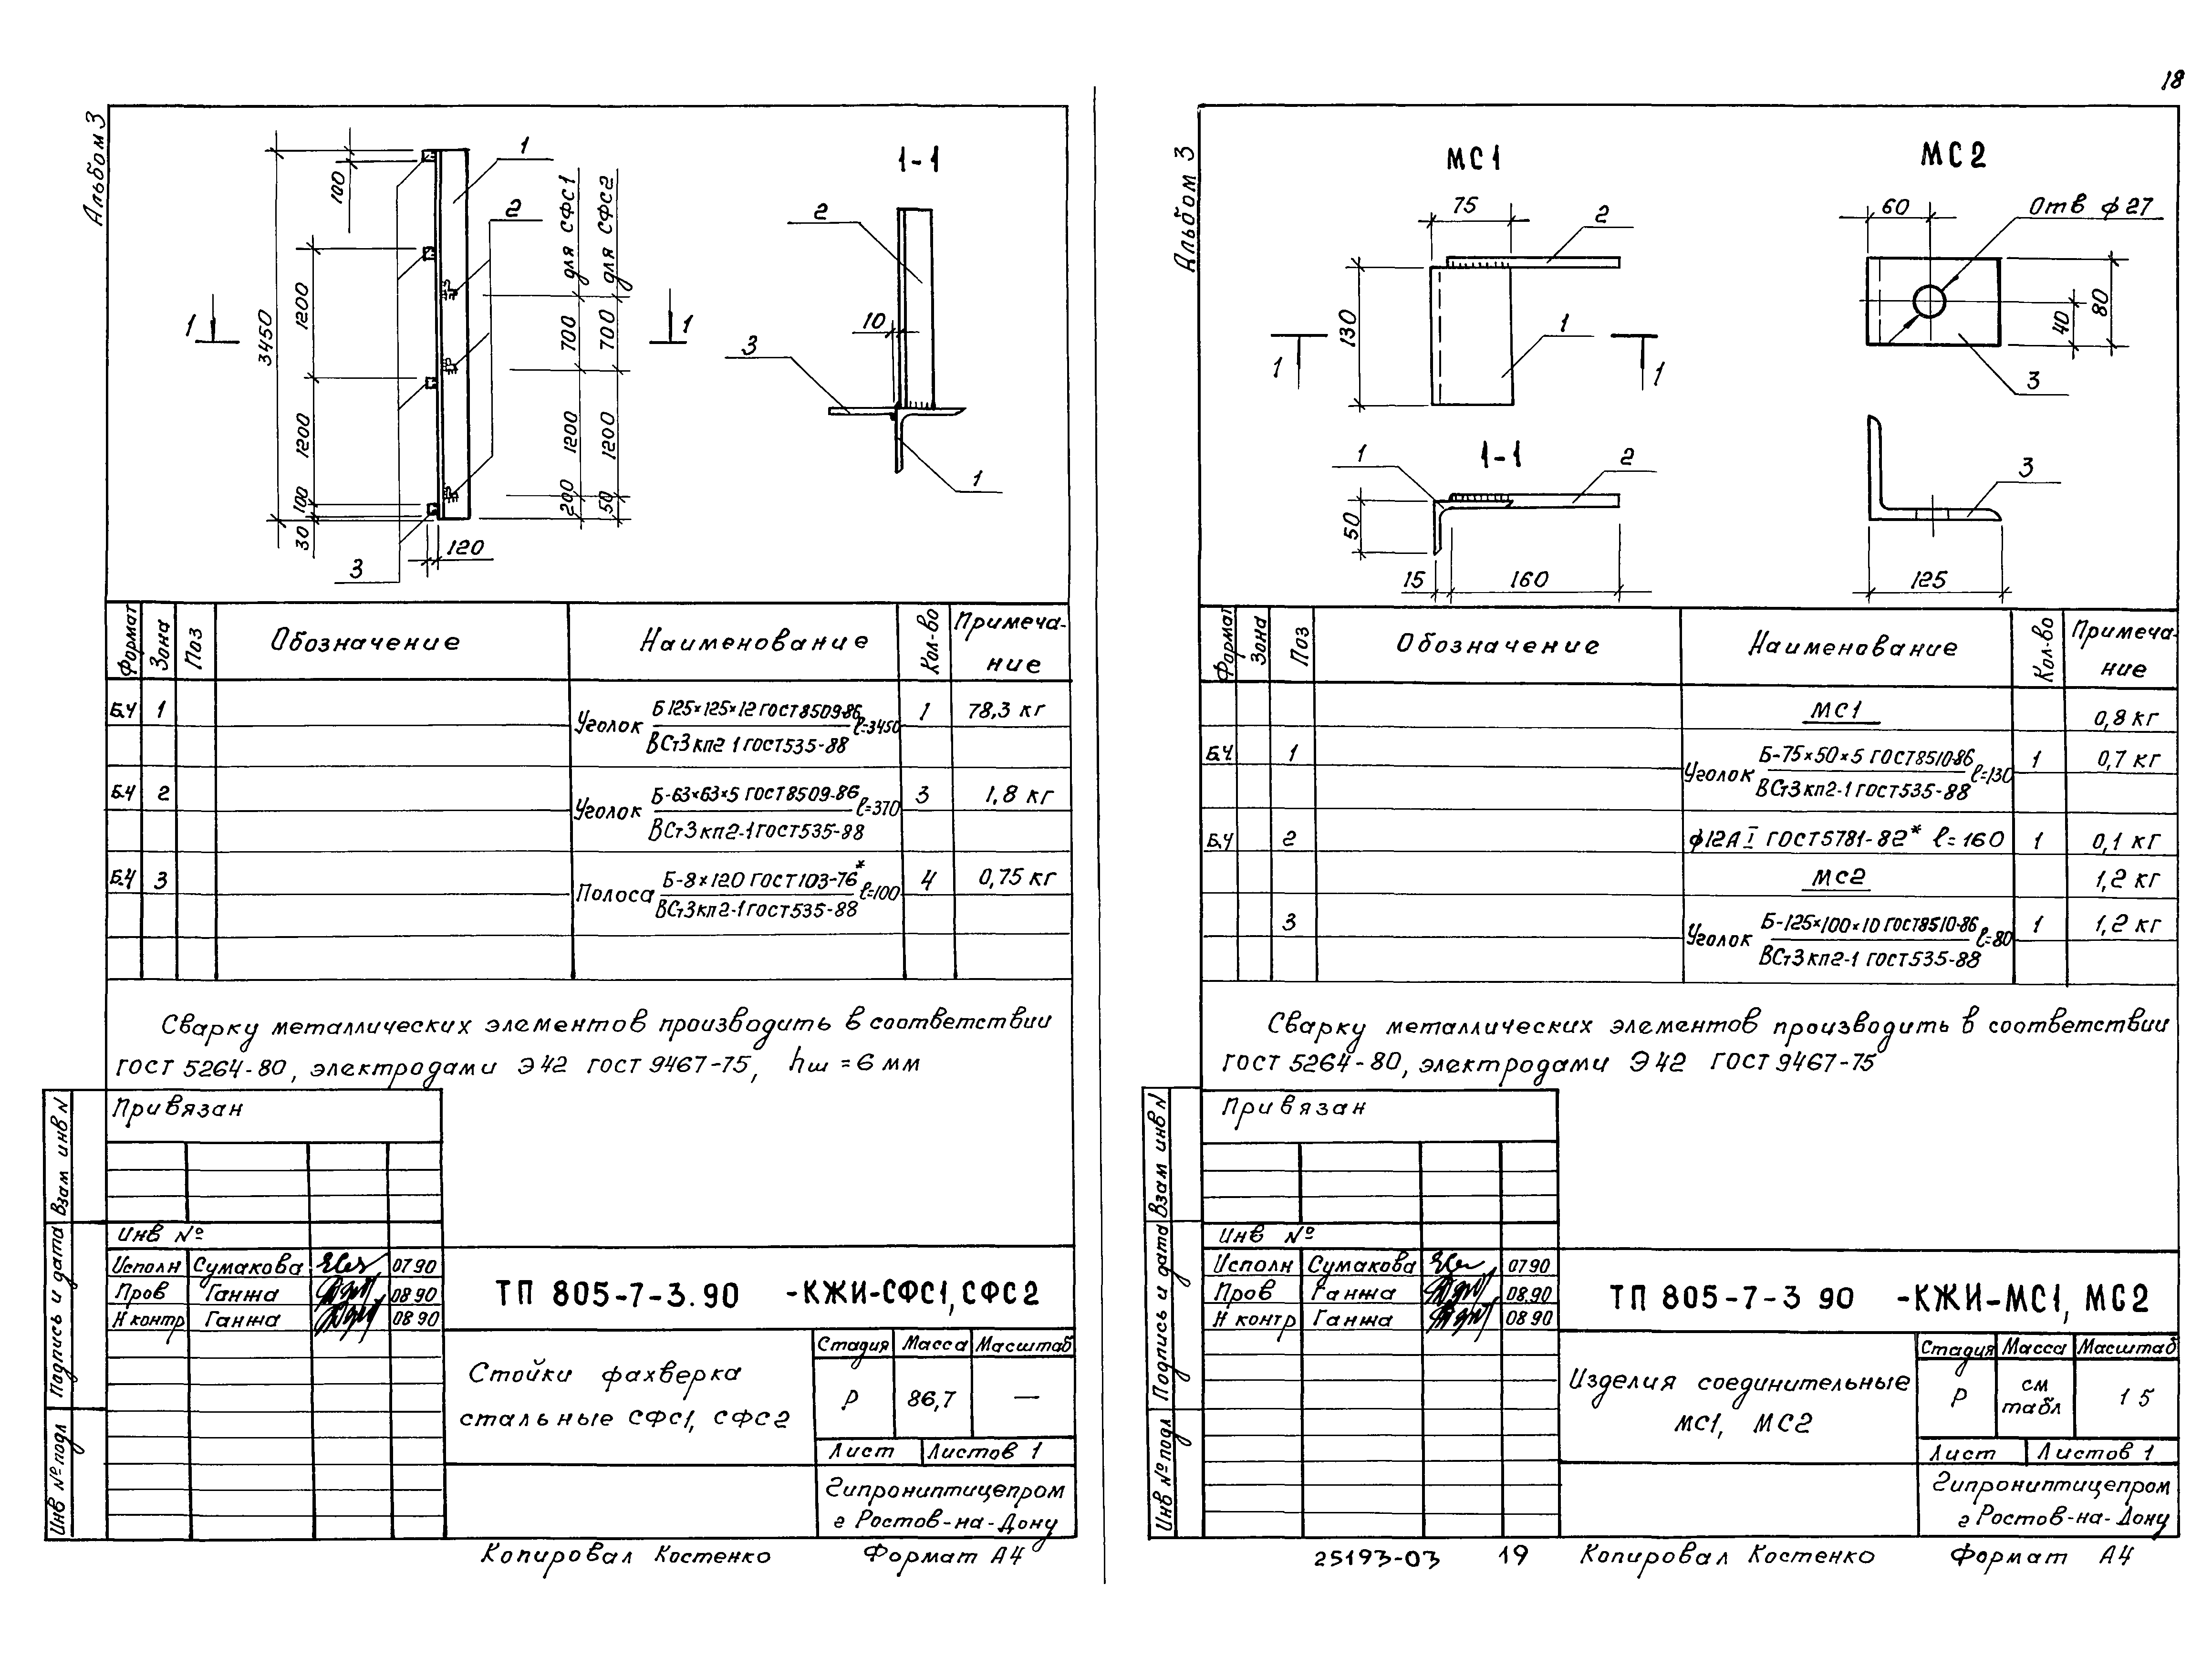 18
Альбом 3
1
2
3
100
1200
3450
1200
100
30
120
1
1
700
1200
200
для СФС1
700
1200
50
для СФС2
1-1
2
10
3
1
Формат
Зона
Поз
Обозначение
Наименование
Кол-во
Примеча-
ние
Б.Ч 1 Уголок Б 125×125×12 ГОСТ 8509-86 ℓ=3450 1 78,3 кг
ВСт3кп2 1 ГОСТ 535-88
Б.Ч 2 Уголок Б-63×63×5 ГОСТ 8509-86 ℓ=370 3 1,8 кг
ВСт3кп2-1 ГОСТ 535-88
Б.Ч 3 Полоса Б-8×120 ГОСТ 103-76* ℓ=100 4 0,75 кг
ВСт3кп2-1 ГОСТ 535-88
Сварку металлических элементов производить в соответствии
ГОСТ 5264-80, электродами Э42 ГОСТ 9467-75, hш = 6 мм
Привязан
Инв №
Взам инв N
Подпись и дата
Инв № подл
Исполн Сумакова 07 90
Пров Ганжа 08 90
Н контр Ганжа 08 90
ТП 805-7-3.90 -КЖИ-СФС1, СФС2
Стойки фахверка
стальные СФС1, СФС2
Стадия Масса Масштаб
Р 86,7 —
Лист Листов 1
Гипрониптицепром
г Ростов-на-Дону
Копировал Костенко Формат А4
Альбом 3
МС1
75
2
130
1
1
1
1-1
1
2
50
15
160
МС2
60
Отв ϕ27
40
80
3
3
125
Формат
Зона
Поз
Обозначение
Наименование
Кол-во
Примеча-
ние
МС1 0,8 кг
Б.Ч 1 Уголок Б-75×50×5 ГОСТ 8510-86 ℓ=130 1 0,7 кг
ВСт3кп2-1 ГОСТ 535-88
Б.Ч 2 ϕ12АI ГОСТ 5781-82* ℓ=160 1 0,1 кг
МС2 1,2 кг
3 Уголок Б-125×100×10 ГОСТ 8510-86 ℓ=80 1 1,2 кг
ВСт3кп2-1 ГОСТ 535-88
Сварку металлических элементов производить в соответствии
ГОСТ 5264-80, электродами Э42 ГОСТ 9467-75
Привязан
Инв №
Взам инв N
Подпись и дата
Инв № подл
Исполн Сумакова 07 90
Пров Ганжа 08.90
Н контр Ганжа 08 90
ТП 805-7-3 90 -КЖИ-МС1, МС2
Изделия соединительные
МС1, МС2
Стадия Масса Масштаб
Р см табл 1 5
Лист Листов 1
Гипрониптицепром
г Ростов-на-Дону
25193-03 19 Копировал Костенко Формат А4